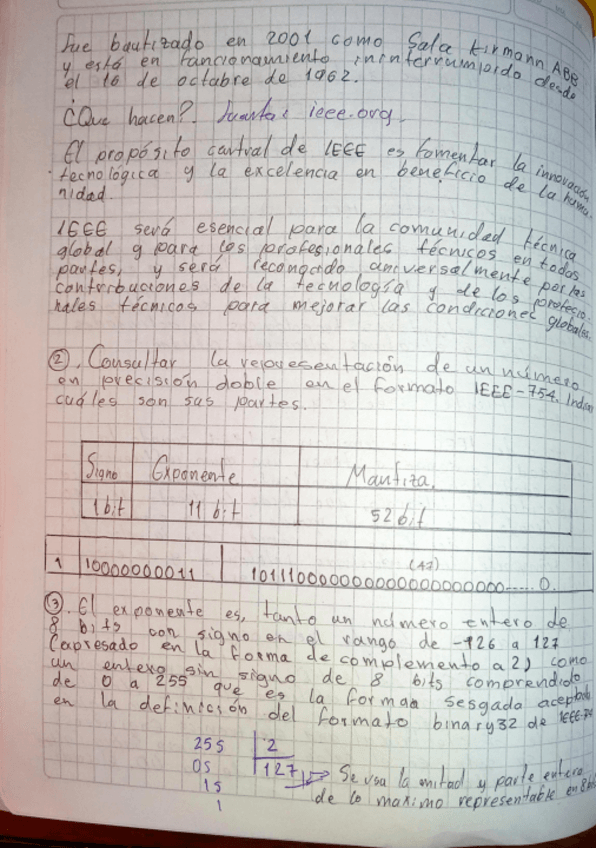 Fue bautizado en 2001 como Sala Kirmann ABB
y está en funcionamiento ininterrumpido desde
el 16 de octubre de 1962.
¿Que hacen?. ieee.org.
El propósito central de IEEE es fomentar la innovación
tecnológica y la excelencia en beneficio de la huma
nidad.
IEEE será esencial para la comunidad técnica
global y para los profesionales técnicos en todas
partes, y será recongcido universalmente por las
contribuciones de la tecnología y de los profecio-
nales técnicos para mejorar las condiciones globales.
②. Consultar la representación de un número
en precisión doble en el formato IEEE-754. Indica
cuáles son sus partes.
Signo Exponente Mantiza.
1 bit 11 bit 52 bit
(47)
1 10000000011 1011100000000000000000000......0.
③. El exponente es, tanto un número entero de
8 bits con signo en el rango de -126 a 127
(expresado en la forma de complemento a 2) como
un entero sin signo de 8 bits comprendido
de 0 a 255 que es la forma sesgada aceptada
en la definición del formato binary32 de IEEE-74
255 2
05 127 Se usa la mitad y parte entera
15 de lo maximo representable en 8 bits
1